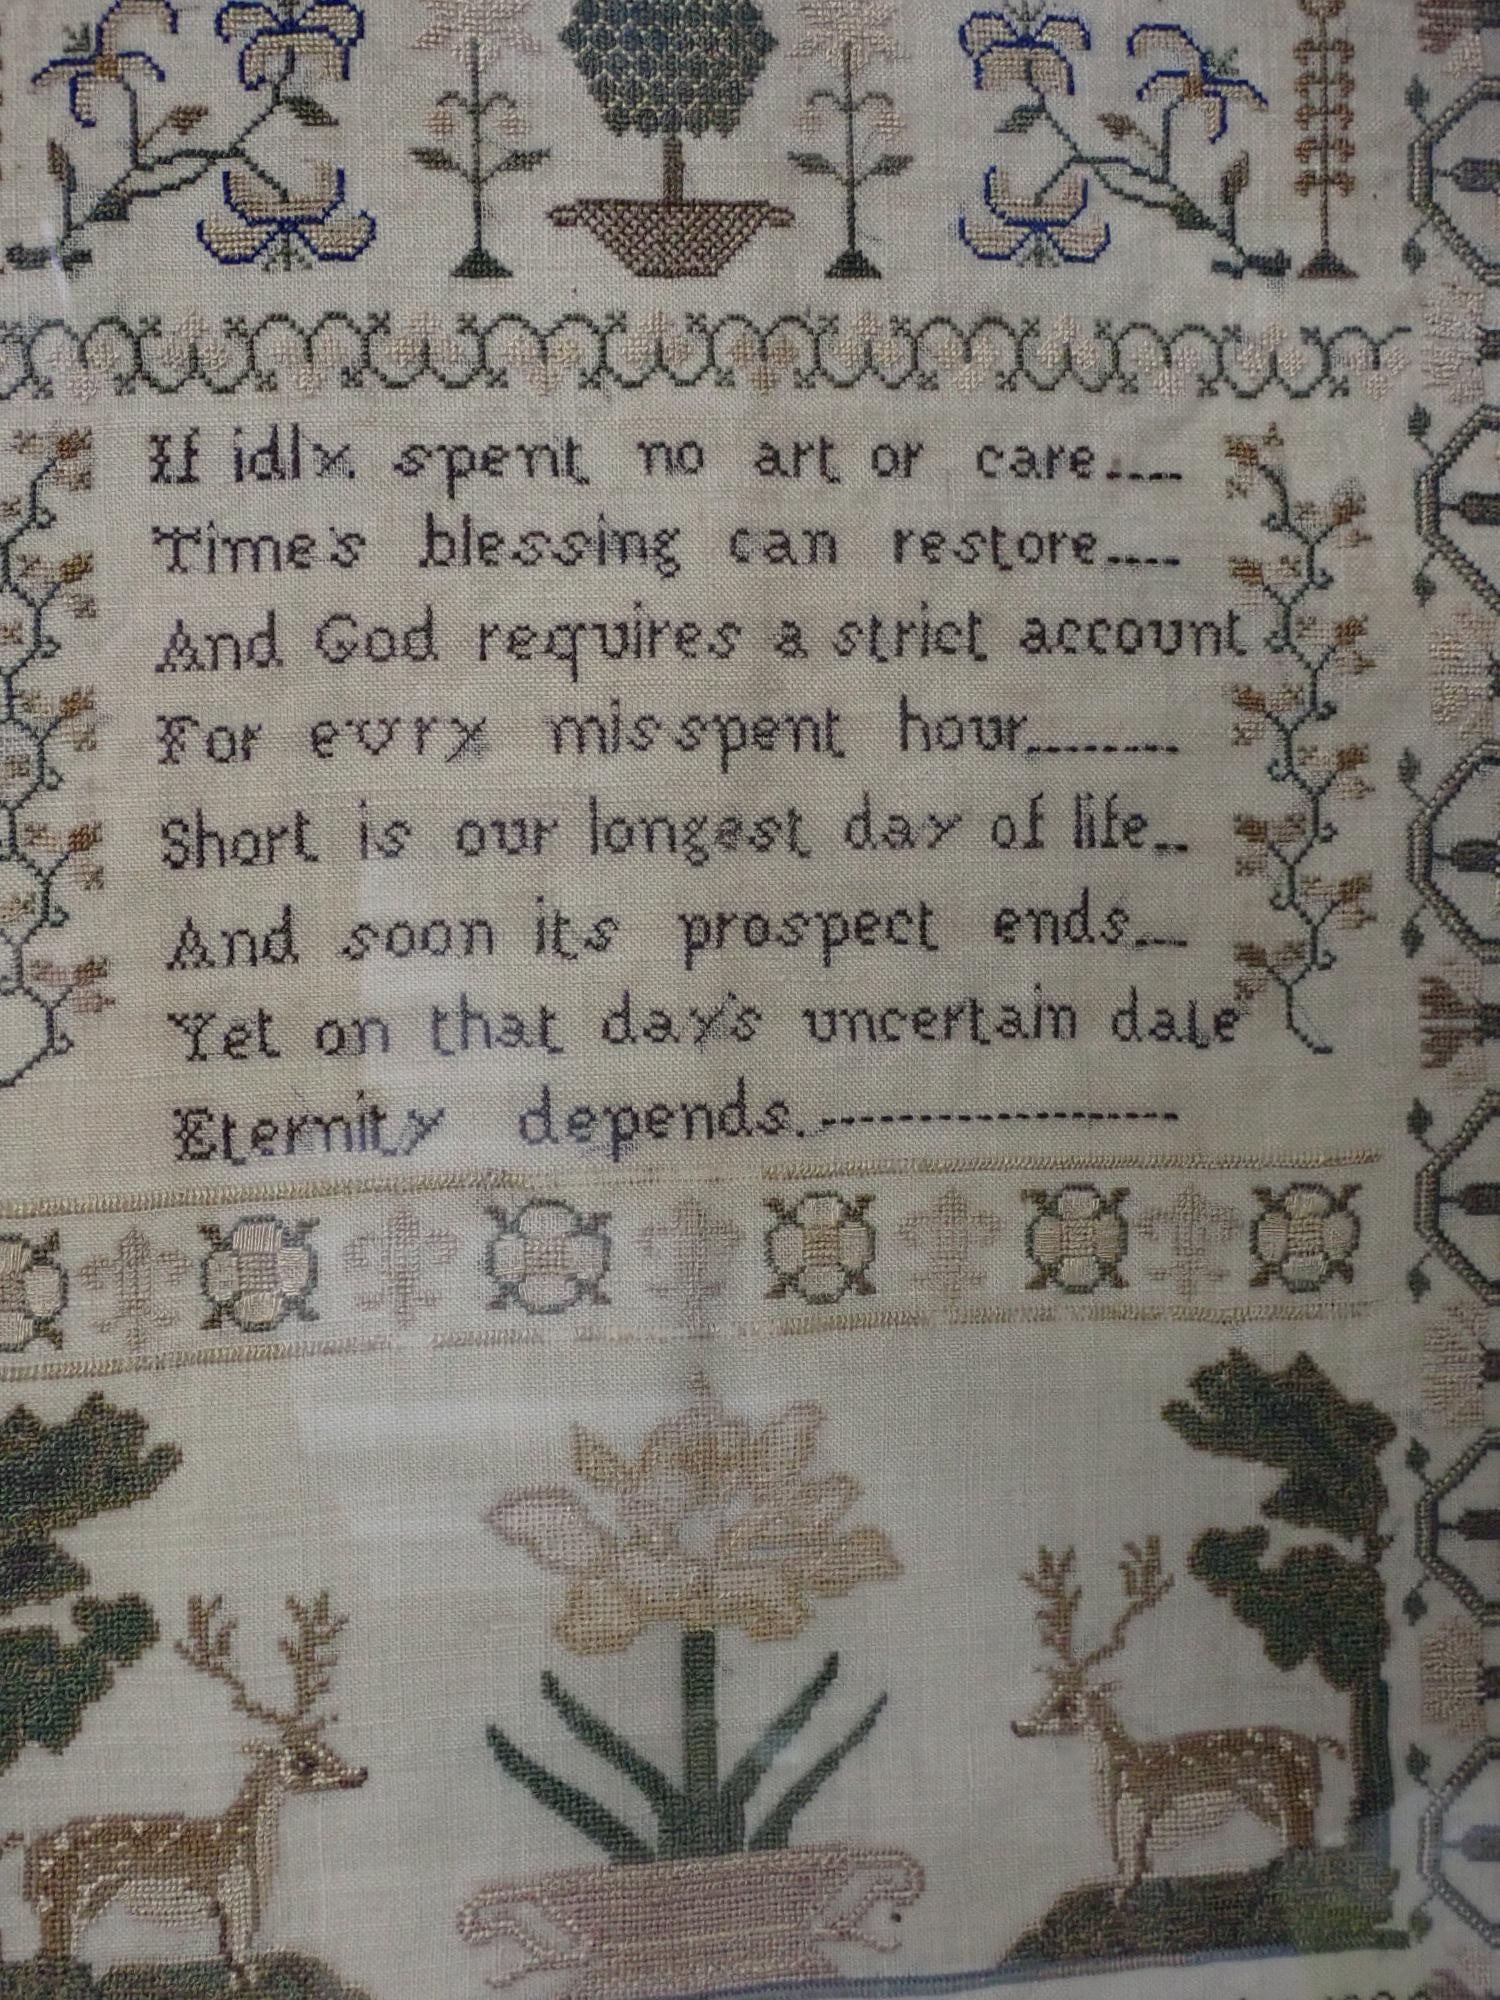 If idly. spent no art or care....
Time's blessing can restore....
And God requires a strict account
For evry misspent hour........
Short is our longest day of life..
And soon its prospect ends...
Yet on that day's uncertain date
Eternity depends.------------------